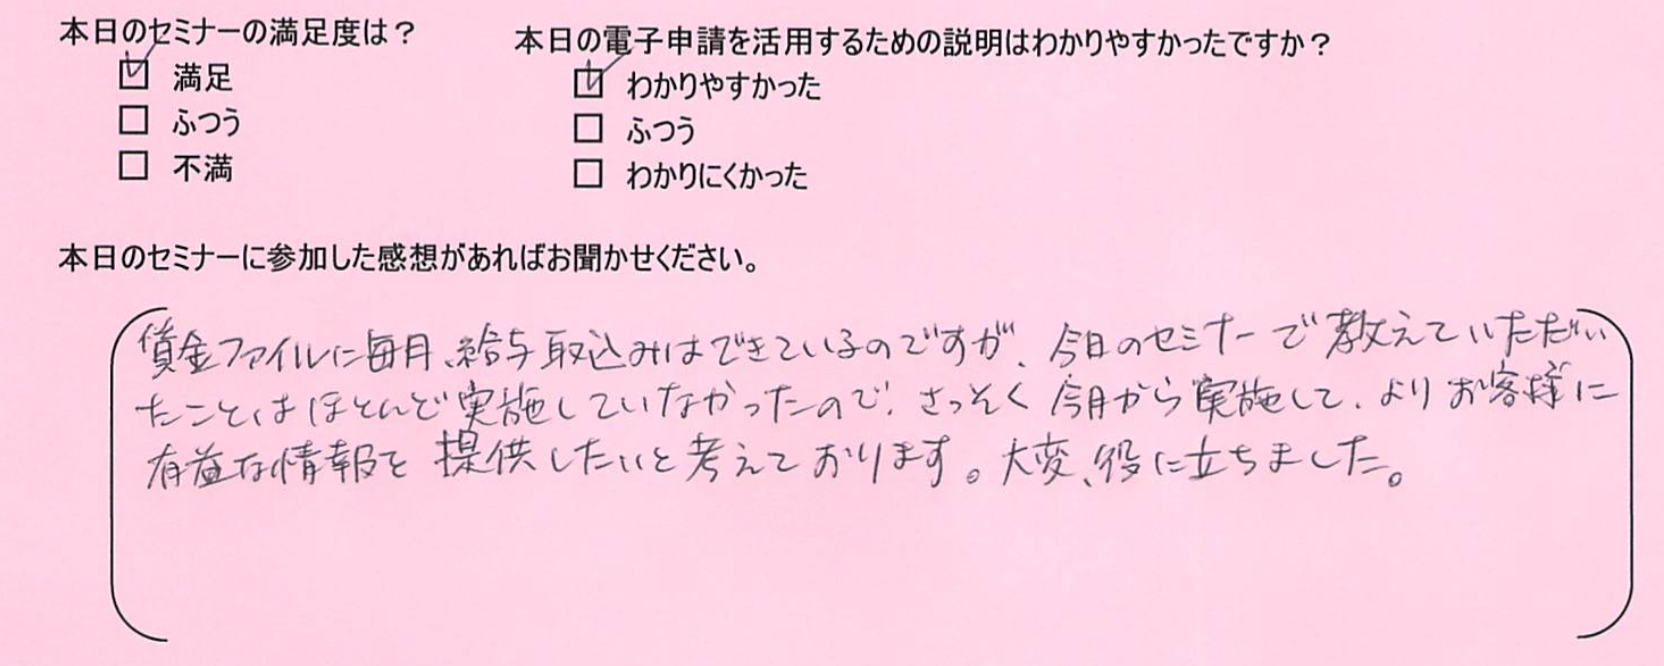 本日のセミナーの満足度は？
☑ 満足
☐ ふつう
☐ 不満
本日の電子申請を活用するための説明はわかりやすかったですか？
☑ わかりやすかった
☐ ふつう
☐ わかりにくかった
本日のセミナーに参加した感想があればお聞かせください。
賃金ファイルに毎月、給与取込みはできているのですが、今日のセミナーで教えていただい
たことはほとんど実施していなかったので、さっそく今月から実施して、よりお客様に
有益な情報を提供したいと考えております。大変、役に立ちました。